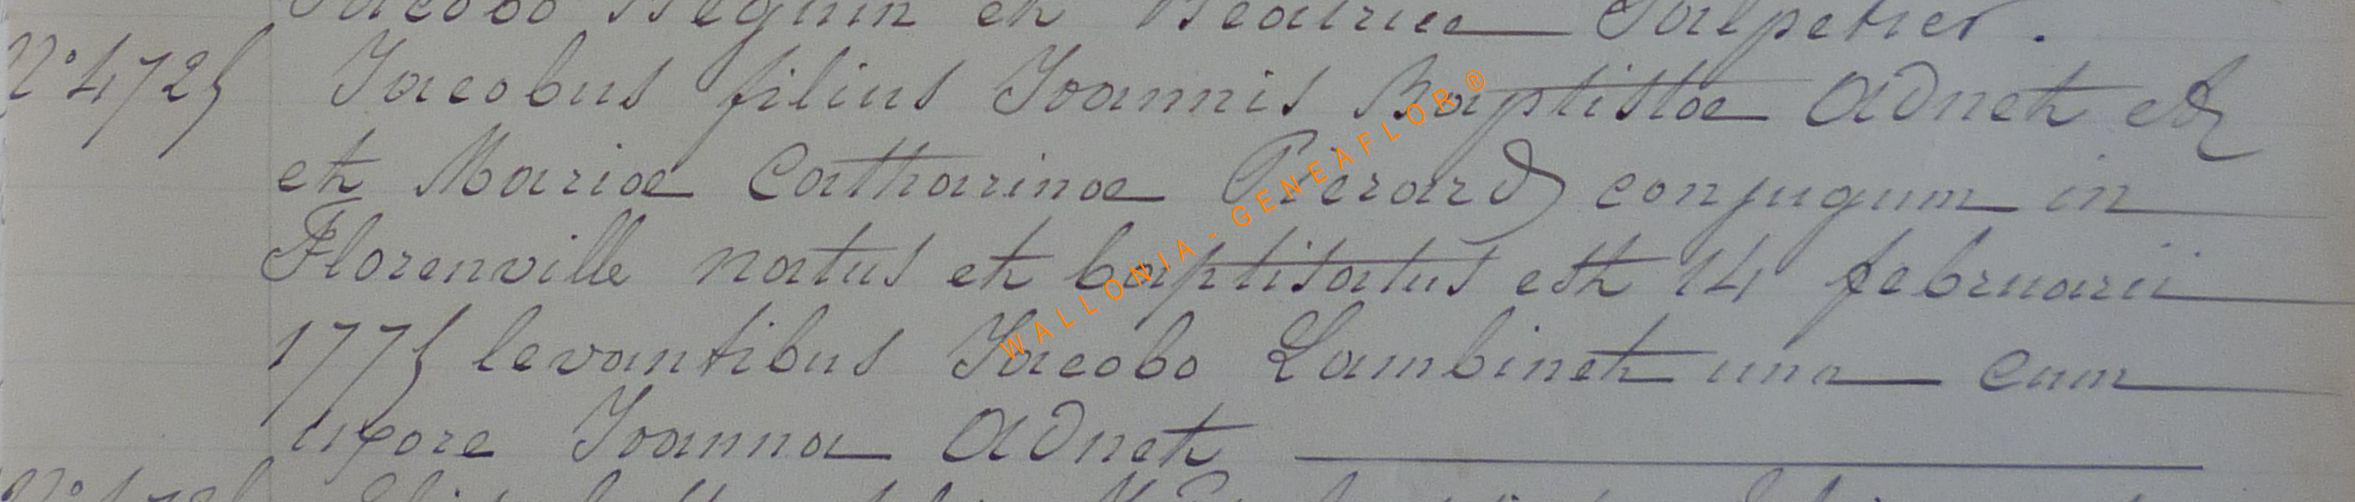 Jacobo Beguin et Beatrice Salpetier.
N° 4725 Jacobus filius Joannis Baptistae Adnet et
et Mariae Catharinae Pierard conjugum in
Florenville natus et baptisatus est 14 februarii
1775 levantibus Jacobo Lambinet una cum
uxore Joanna Adnet
WALLONIA - GENEAFLOR ®